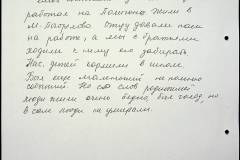 работал на
жили в
М.
Отцу давали паек
на работе, а мы с братьями
ходили к нему его забирать
Нас, детей кормили в школе.
Был еще маленький не помню
событий. Но со слов родителей
люди жили очень бедно, был голод, но
в селе люди не умирали.